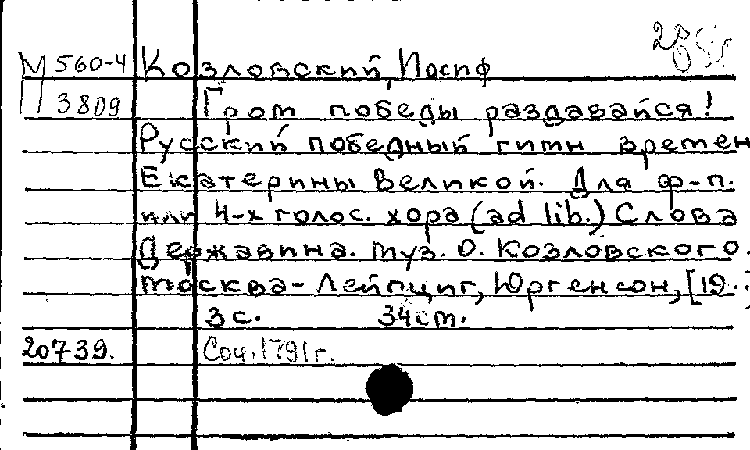 М 560-4 Козловский, Иосиф
П 3809 Гром победы раздавайся!
Русский победный гимн времен
Екатерины Великой. Для ф-п.
или 4-х голос. хора (ad lib.) Слова
Державина. Муз. О. Козловского.
Москва-Лейпциг, Юргенсон, [19..
3 с. 34 см.
20739. Соч. 1791 г.